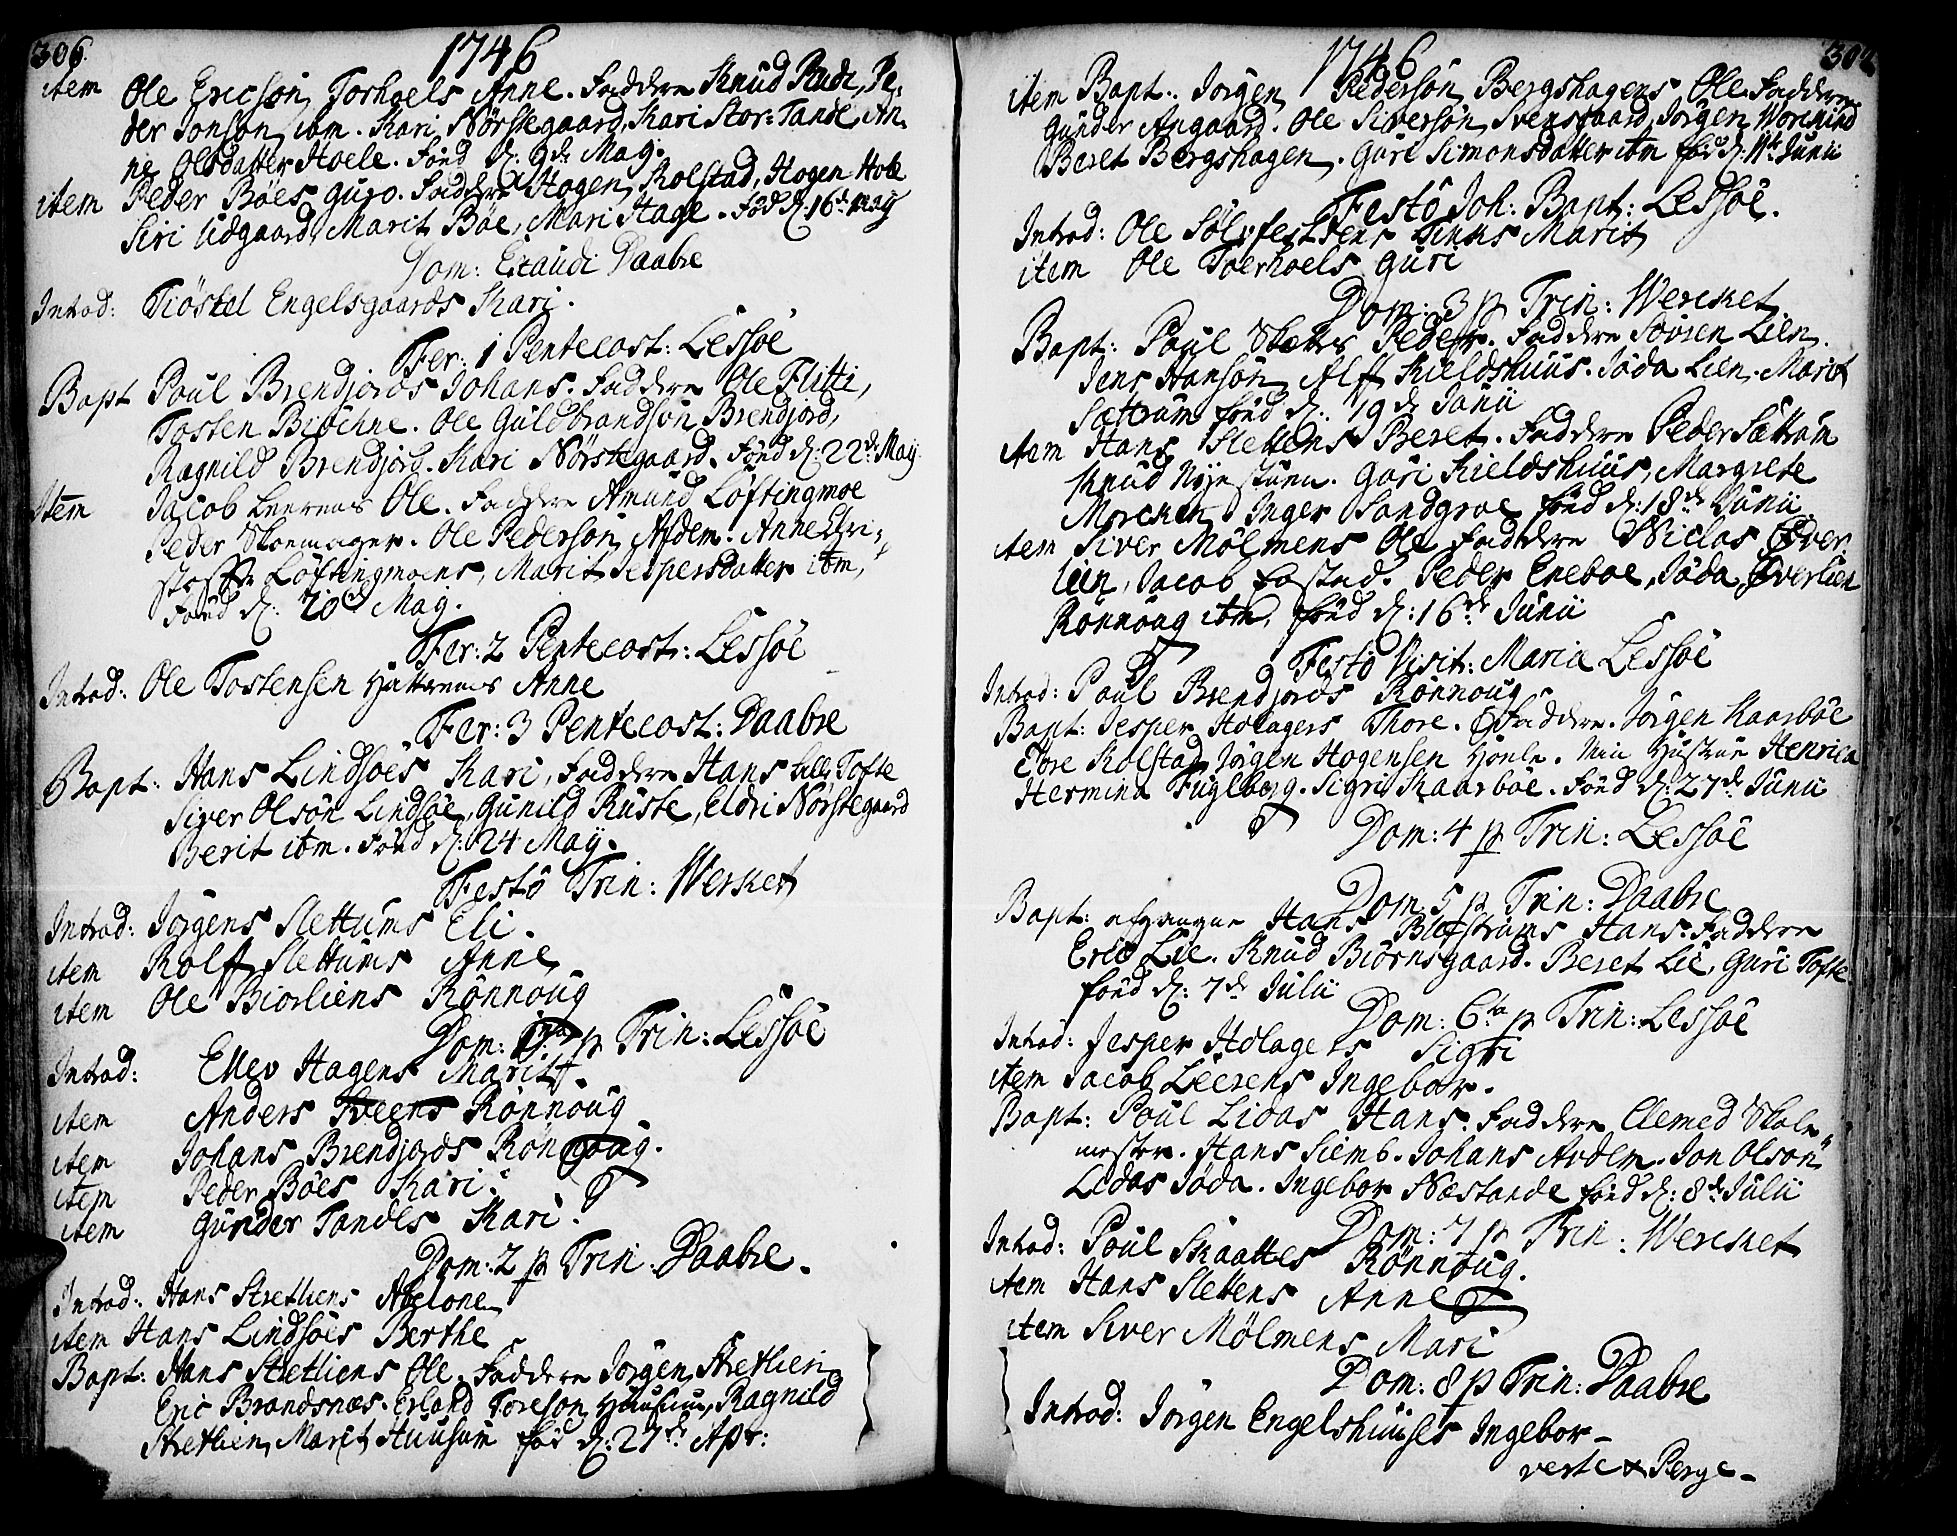 306.
1746
item Ole Ericsøn Torhoels Anne. Faddere Knud Rudi, Pe,
der Jonsøn ibm. Kari Nørstegaard, Kari Stor-Tande, An,
ne Olsdatter Hoele. Fød d: 9de May.
item Peder Bøes Guro. Faddere Hogen Kolstad, Hogen Hole
Siri Udgaard, Marit Bøe, Mari Hage. Fød d: 16de May
Dom: Exaudi Daabre
Introd: Tiøstel Engelsgaards Kari.
Fer: 1 Pentecost: Lessøe
Bapt Poul Brendjords Johans. Faddere Ole Flitti,
Tosten Biøchne. Ole Guldbrandsøn Brendjord,
Ragnild Brendjord. Kari Nørstegaard. Fød d: 22de May
Item Jacob Leerens Ole. Faddere Amund Løftingmoe
Peder Skoemager. Ole Pedersøn Afdem. Anne Chri,
stoffr Løftingmoens, Marit Jespersdatter ibm,
Fød d: 20de May.
Fer: 2 Pentecost: Lessøe
Introd: Ole Tostensen Hattrems Anne
Fer: 3 Pentecost: Daabre
Bapt: Hans Lindsøes Kari, Faddere Hans Lille Tofte
Siver Olsøn Lindsøe, Gunild Ruste, Eldri Nørstegaard
Berit ibm. Fød d: 24 May.
Festo Trin: Werket
Introd: Jørgens Slettums Eli.
item Rolff Slettums Anne
item Ole Biorliens Rønnoug
Dom: p Trin: Lessøe
Introd: Ellev Hagens Marit.
item Anders Tveens Rønnoug
item Johans Brendjords Rønnoug.
item Peder Bøes Kari.
item Gunder Tandes Kari.
Dom: 2 p Trin: Daabre.
Introd: Hans Stretliens Abelone
item Hans Lindsøes Berthe
Bapt: Hans Stretliens Ole. Faddere Jørgen Stretlien
Eric Brandsnæs. Erland Toresøn Huusum, Ragnild
Stretlien, Marit Huusum fød d: 27de Apr:
1746
item Bapt: Jørgen Pedersøn Bergshagens Ole. Faddere
Gunder Angaard. Ole Siversøn Svensgaard, Jørgen
Beret Bergshagen. Guri Simonsdatter ibm fød d: 11te Junii
Festo Joh: Bapt: Lessøe.
Introd: Ole Sølvfestsens Marit
item Ole Toerhoels Guri
Dom: 3 p Trin: Wercket
Bapt: Poul Skottes Peder. Faddere Søvren Lien.
Jens Hansøn, Alff Kieldshuus. Joda Lien. Marit
Sættrum fød d: 19de Junii
item Hans Slettens Beret. Faddere Peder Sættrum
Knud Nyestuen. Guri Kieldshuus, Margrete
Morcken, Inger Sandgroe fød d: 18de Junii
item Siver Mølmens Ole Faddere Niclas Øver
lien, Jacob Fostad. Peder Eneboe, Joda Øverlien
Rønnoug ibm, fød d: 16de Junii
Festo Visit: Mariæ Lessøe
Introd: Poul Brendjords Rønnoug
Bapt: Jesper Holagers Thore. Faddere. Jørgen Kaarbøe
Tore Kolstad, Jørgen Hogensen Hoele. Min Hustrue Henrica
Hermina Fuglberg. Sigri Kaarbøe. Fød d: 27de Junii
Dom: 4 p Trin: Lessøe
Dom 5 p Trin: Daabre
Bapt: afgangne Hans Blefstrøms Hans. Faddere
Eric Lie. Knud Biørnsgaard. Beret Lie, Guri Tofte
fød d: 7de Julii
Dom: 6ta p Trin: Lessøe
Introd: Jesper Holagers Sigri
item Jacob Leerens Ingebor.
Bapt: Poul Lidas Hans. Faddere Clemed Skole,
mester. Hans Siemb. Johans Avdem. Jon Olsøn
Lidas Joda. Ingebor Næstande fød d: 8de Julii
Dom: 7 p Trin: Wercket
Introd: Poul Skaattes Rønnoug.
item Hans Slettens Anne
item Siver Mølmens Mari
Dom: 8 p Trin: Daabre
Introd: Jørgen Engelshuuses Ingebor
verte & Perge